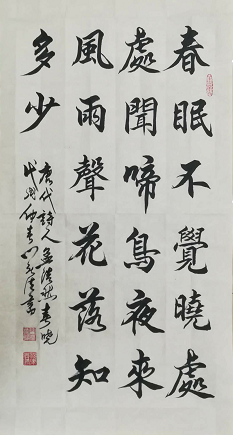 春眠不覺曉處
處聞啼鳥夜來
風雨聲花落知
多少
唐代詩人孟浩然春曉
戊戌仲春